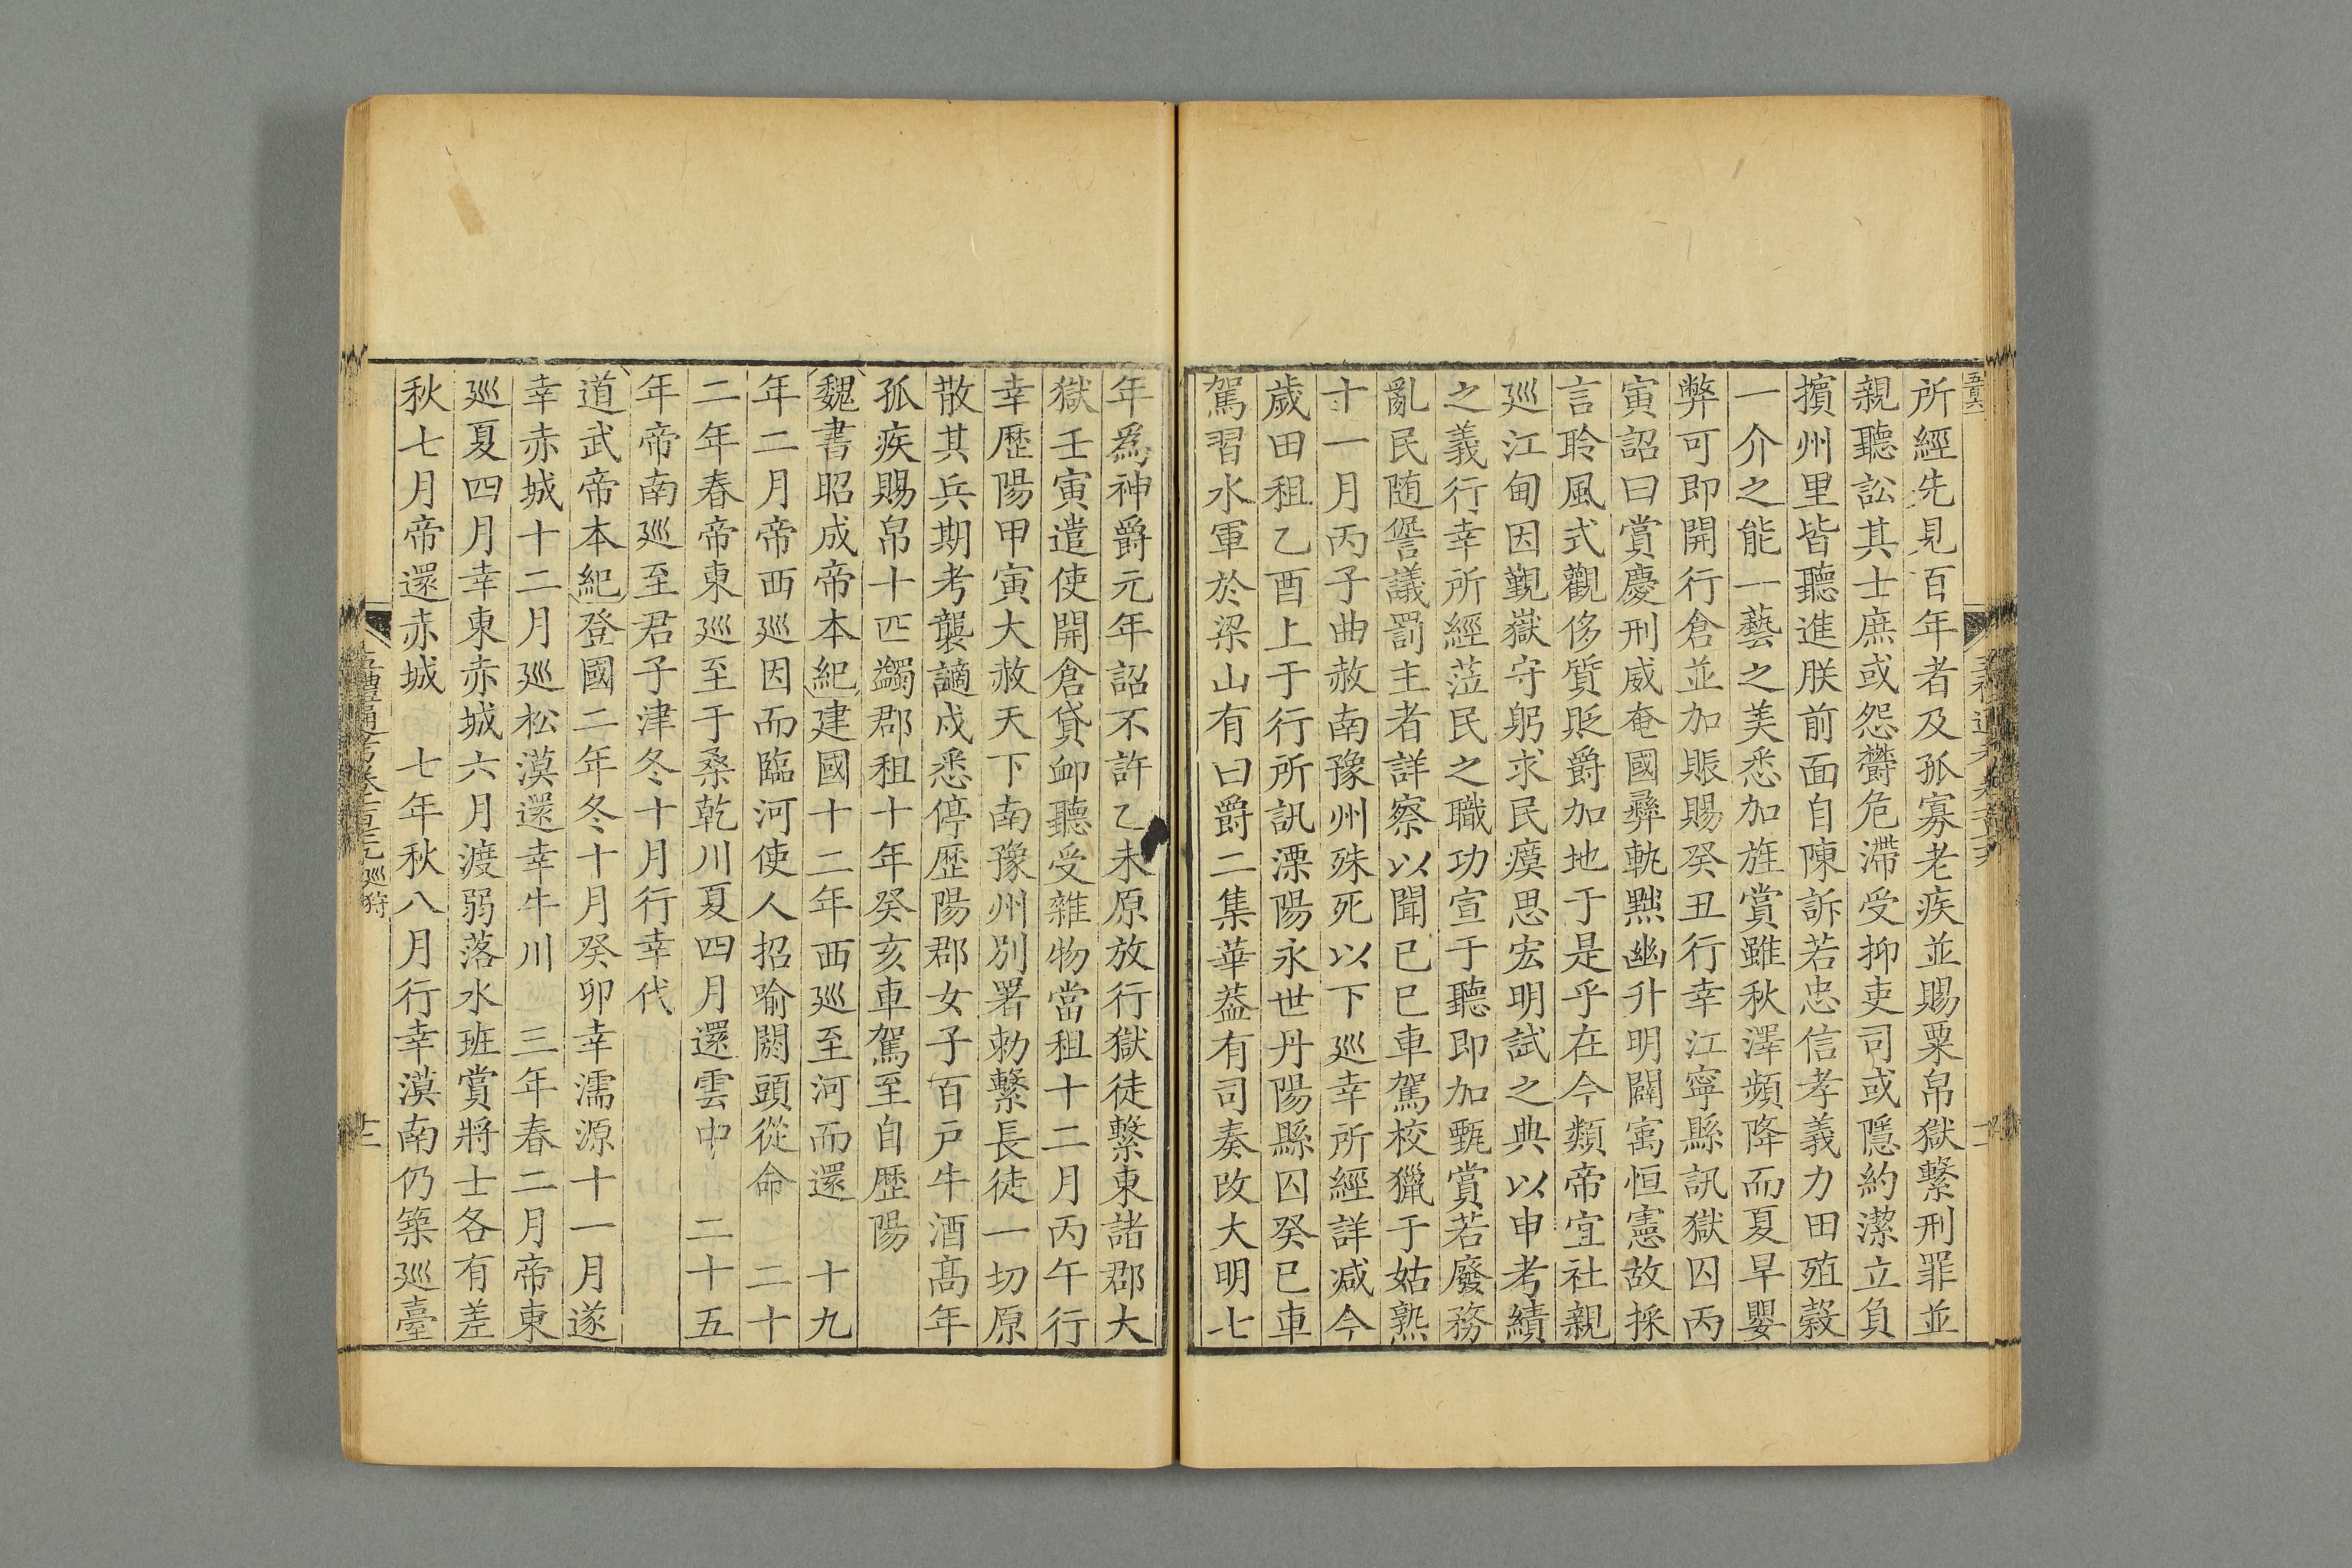 所經先見百年者及孤寡老疾並賜粟帛獄繫刑罪並
親聽訟其士庶或怨鬱危滯受抑吏司或隱約潔立負
擯州里皆聽進朕前面自陳訴若忠信孝義力田殖穀
一介之能一藝之美悉加旌賞雖秋澤頻降而夏旱嬰
弊可即開行倉並加賑賜癸丑行幸江寧縣訊獄囚丙
寅詔曰賞慶刑威奄國彝軌黜幽升明闢寓恒憲故採
言聆風式觀侈質貶爵加地于是乎在今類帝宜社親
廵江甸因覲嶽守躬求民瘼思宏明試之典以申考績
之義行幸所經蒞民之職功宣于聽即加甄賞若廢務
亂民随愆議罰主者詳察以聞已巳車駕校獵于姑熟
十一月丙子曲赦南豫州殊死以下廵幸所經詳減今
歲田租乙酉上于行所訊溧陽永世丹陽縣囚癸巳車
駕習水軍於梁山有曰爵二集華葢有司奏改大明七
年爲神爵元年詔不許乙未原放行獄徒繫東諸郡大
獄壬寅遣使開倉貸卹聽受雜物當租十二月丙午行
幸歷陽甲寅大赦天下南豫州別署勅繫長徒一切原
散其兵期考襲謫戍悉停歷陽郡女子百戸牛酒高年
孤疾賜帛十匹蠲郡租十年癸亥車駕至自歷陽
魏書昭成帝本紀建國十二年西廵至河而還 十九
年二月帝西廵因而臨河使人招喻閼頭從命 二十
二年春帝東廵至于桑乾川夏四月還雲中 二十五
年帝南廵至君子津冬十月行幸代
道武帝本紀登國二年冬十月癸卯幸濡源十一月遂
幸赤城十二月廵松漠還幸牛川 三年春二月帝東
廵夏四月幸東赤城六月渡弱落水班賞將士各有差
秋七月帝還赤城 七年秋八月行幸漠南仍築廵臺
廵狩